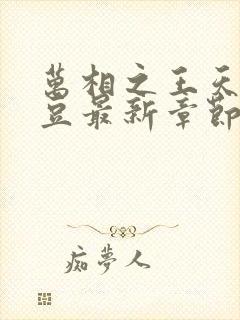 萬相之王天
豆最新章節
痴夢人